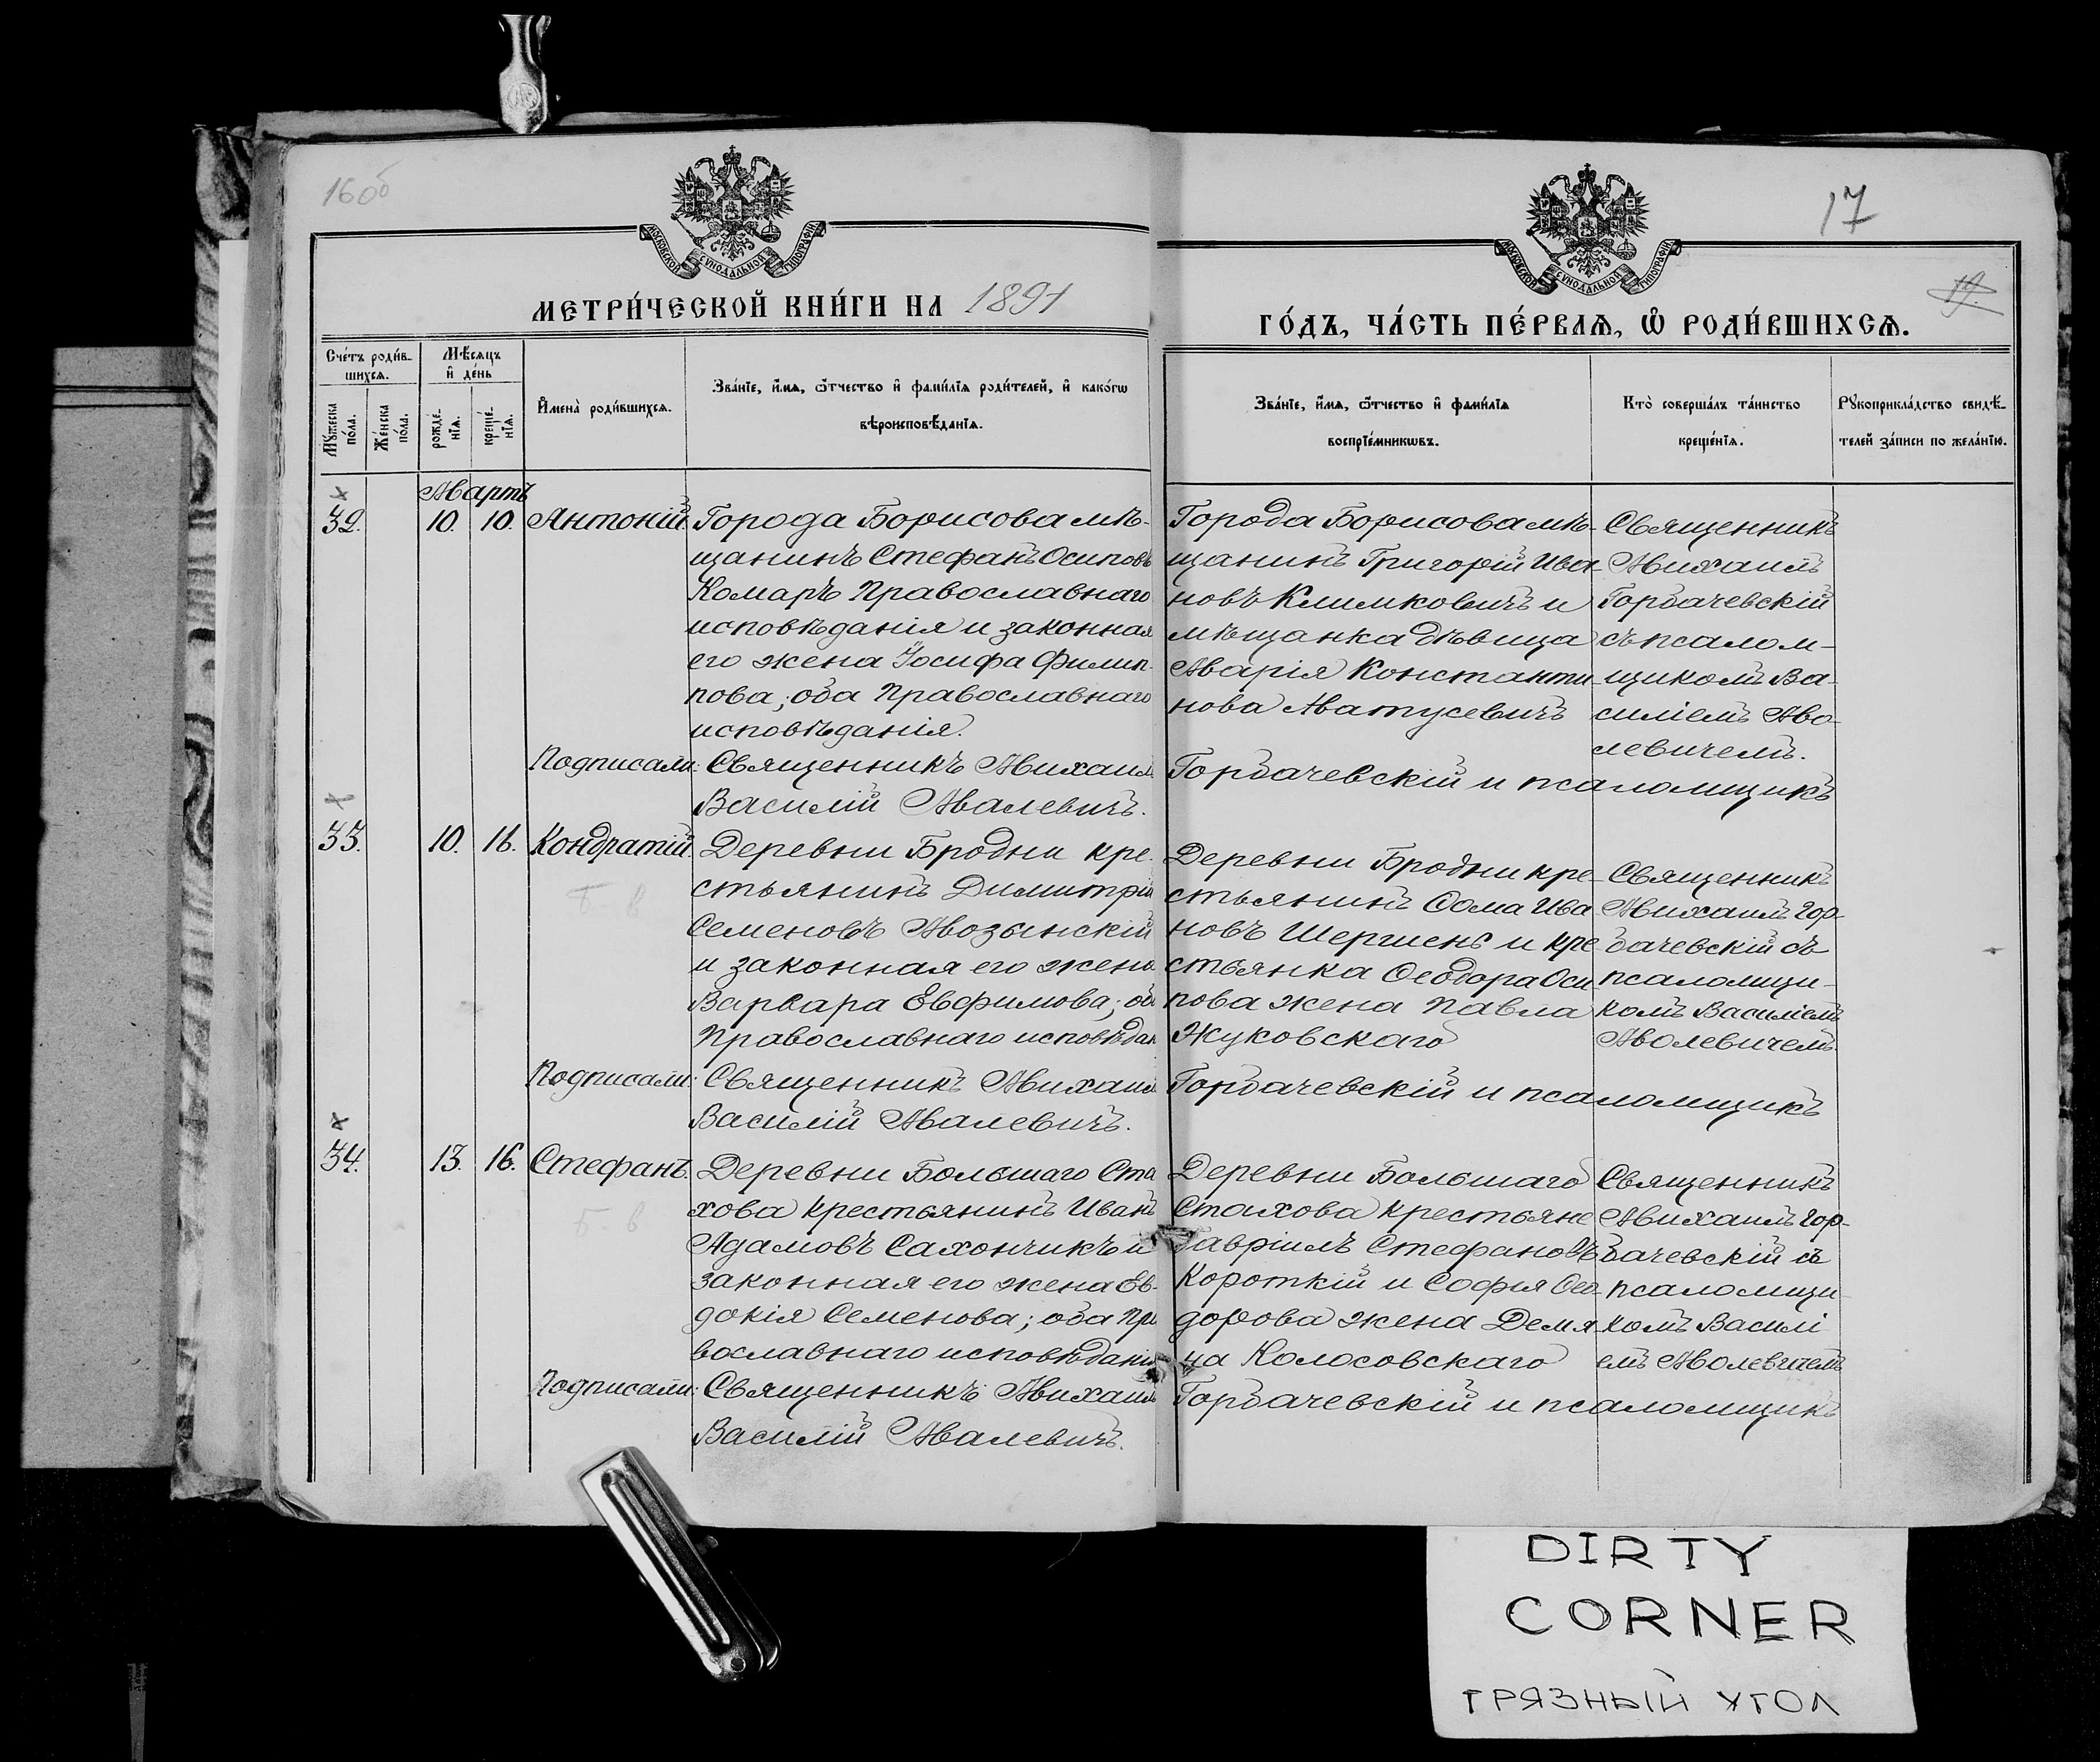 16об
17
19.
МОСКОВСКОЙ СѴНОДАЛЬНОЙ ТИПОГРАФІИ
МОСКОВСКОЙ СѴНОДАЛЬНОЙ ТИПОГРАФІИ
МЕТРИ́ЧЕСКОЙ КНИ́ГИ НА 1891
ГО́ДЪ, ЧА́СТЬ ПЕ́РВАѦ, Ѡ҆ РОДИ́ВШИХСѦ.
Сче́тъ роди́в-
шихсѧ.
Мѣ́сѧцъ
и҆ де́нь
Мꙋ́жеска
по́ла.
Же́нска
по́ла.
рожде́-
нїѧ.
креще́-
нїѧ.
И҆мена̀ роди́вшихсѧ.
Зва́нїе, и҆́мѧ, ѿчество и҆ фами́лїѧ роди́телей, и҆ како́гѡ
вѣроисповѣ́данїѧ.
Зва́нїе, и҆́мѧ, ѿчество и҆ фами́лїѧ
воспрїе́мникѡвъ.
Кто̀ соверша́лъ та́инство
креще́нїѧ.
Рꙋкоприкла́дство свидѣ́-
телей за́писи по жела́нїю.
Мартъ
32. 10. 10. Антоній.
Города Борисова мѣ-
щанинъ Стефанъ Осиповъ
Комаръ Православнаго
исповѣданія и законная
его жена Іосифа Филип-
пова; оба Православнаго
исповѣданія.
Города Борисова мѣ-
щанинъ Григорій Ива-
новъ Климковичъ и
мѣщанка дѣвица
Марія Константи-
нова Матусевичъ
Священникъ
Михаилъ
Горбачевскій
съ псалом-
щикомъ Ва-
силіемъ Мо-
левичемъ.
Подписали: Священникъ Михаилъ Горбачевскій и псаломщикъ
Василій Малевичъ.
33. 10. 16. Кондратій.
Б-в
Деревни Бродни кре-
стьянинъ Димитрій
Семеновъ Мозынскій
и законная его жена
Варвара Евфимова; оба
Православнаго исповѣдан
Деревни Бродни кре-
стьянинъ Ѳома Ива
новъ Шершень и кре
стьянка Ѳеодора Оси-
пова жена Павла
Жуковскаго
Священникъ
Михаилъ Гор-
бачевскій съ
псаломщи-
комъ Василіемъ
Молевичемъ.
Подписали: Священникъ Михаилъ Горбачевскій и псаломщикъ
Василій Малевичъ.
34. 13. 16. Стефанъ.
Б-в
Деревни Большаго Ста
хова крестьянинъ Иванъ
Адамовъ Сахончикъ и
законная его жена Ев-
докія Семенова; оба Пра
вославнаго исповѣданія
Деревни Большаго
Стахова крестьяне
Гавріилъ Стефановъ
Короткій и Софія Ѳео-
дорова жена Демя-
на Колосовскаго
Священникъ
Михаилъ Гор-
бачевскій съ
псаломщи-
комъ Василі
емъ Молевичемъ
Подписали: Священникъ Михаилъ Горбачевскій и псаломщикъ
Василій Малевичъ.
DIRTY
CORNER
ГРЯЗНЫЙ УГОЛ